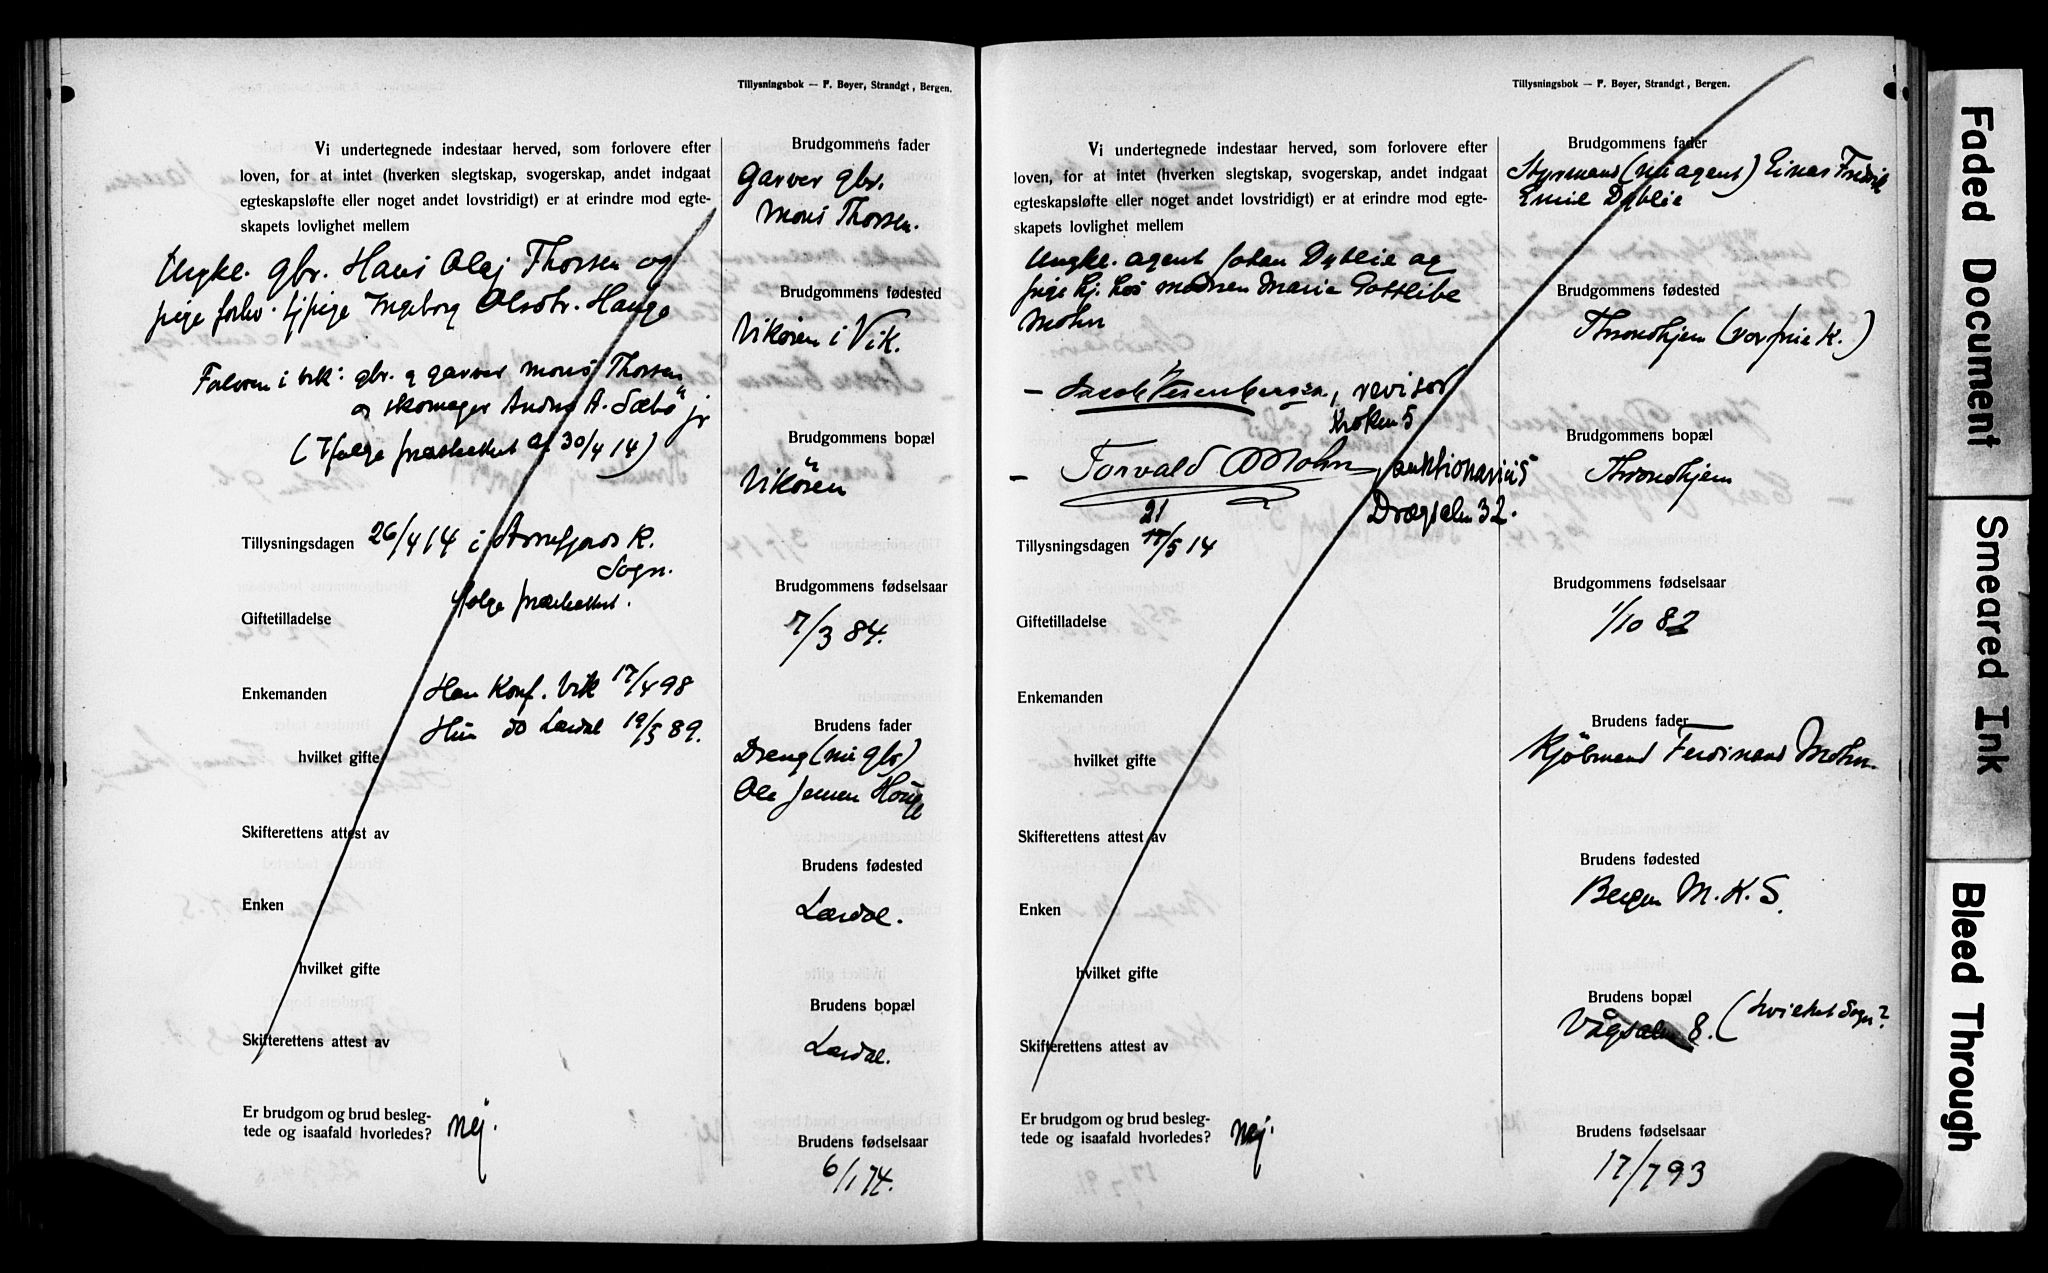 Tillysningsbok — F. Bøyer, Strandgt, Bergen.
Vi undertegnede indestaar herved, som forlovere efter
loven, for at intet (hverken slegtskap, svogerskap, andet indgaat
egteskapsløfte eller noget andet lovstridigt) er at erindre mod egte-
skapets lovlighet mellem
Ungkl. gbr. Hans Olaj Thorsen og
pige forhv. tj pige Ingeborg Olsdtr. Hauge
Forloven i Vik: gbr. & garver Mons Thorsen
og skomager A. Sæbö jr
(Ifølge præsteattest af 30/4 14)
Tillysningsdagen 26/4 14 i Arnefjords K.
Sogn.
ifølge præsteattest.
Giftetilladelse
Enkemanden Han Konf. Vik 17/4 98
Hun do Lærdal 19/5 89.
hvilket gifte
Skifterettens attest av
Enken
hvilket gifte
Skifterettens attest av
Er brudgom og brud besleg-
tede og isaafald hvorledes? Nej.
Brudgommens fader
Garver gbr.
Mons Thorsen.
Brudgommens fødested
Vikören i Vik.
Brudgommens bopæl
Vikören
Brudgommens fødselsaar
7/3 84.
Brudens fader
Dreng (nu gbr)
Ole Jensen Hauge
Brudens fødested
Lærdal.
Brudens bopæl
Lærdal.
Brudens fødselsaar
6/1 74.
Tillysningsbok — F. Bøyer, Strandgt, Bergen.
Vi undertegnede indestaar herved, som forlovere efter
loven, for at intet (hverken slegtskap, svogerskap, andet indgaat
egteskapsløfte eller noget andet lovstridigt) er at erindre mod egte-
skapets lovlighet mellem
Ungkl. agent Johan Dyblie og
pige hj. hos modren Marie Gottlibe
Mohn
— Jacob, revisor
Kroken 5
— Torvald Mohn, auktionarius
Drægsalm 32.
21
Tillysningsdagen 17/5 14
Giftetilladelse
Enkemanden
hvilket gifte
Skifterettens attest av
Enken
hvilket gifte
Skifterettens attest av
Er brudgom og brud besleg-
tede og isaafald hvorledes? Nej.
Brudgommens fader
Styrmand (nu agent) Einar Fredrik
Emil Dyblie
Brudgommens fødested
Throndhjem (vor frue K.)
Brudgommens bopæl
Throndhjem
Brudgommens fødselsaar
1/10 82
Brudens fader
Kjöbmand Ferdinand Mohn.
Brudens fødested
Bergen M. K. S.
Brudens bopæl
Vågsalm 8. (hvilket Sogn?
Brudens fødselsaar
17/7 93
Faded Document
Smeared Ink
Bleed Through